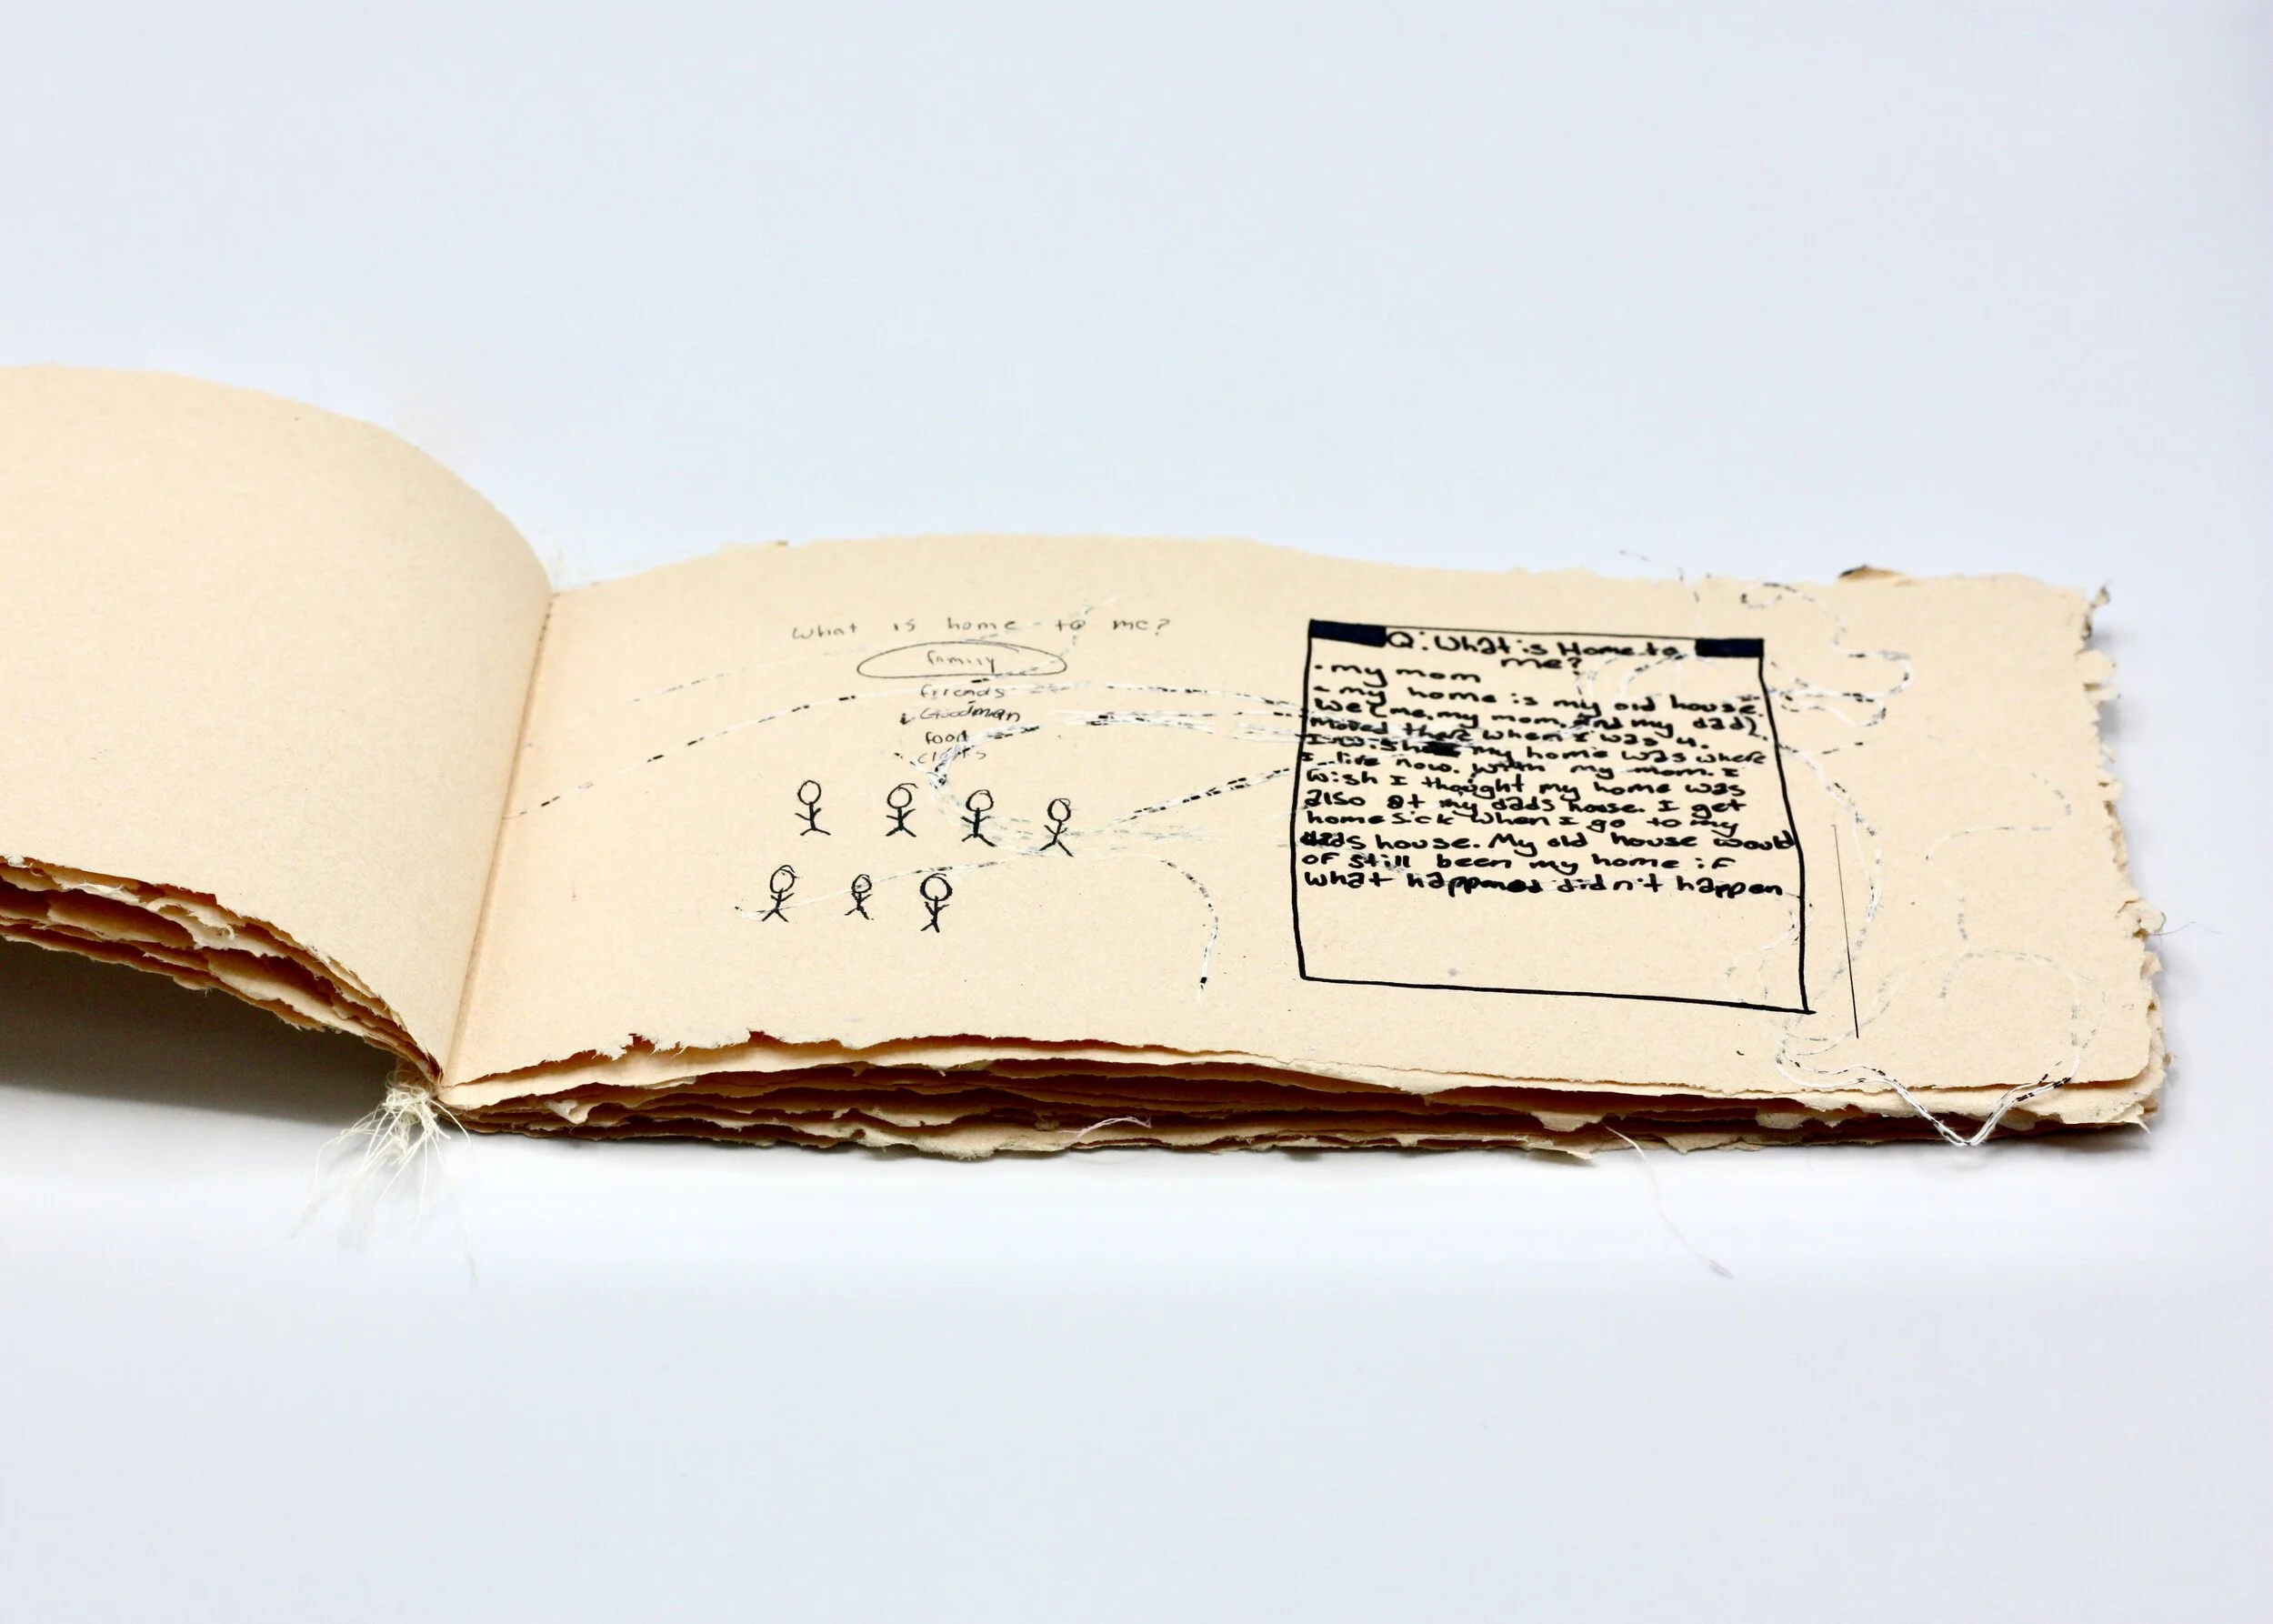 What is home to me?
family
friends
Goodman
food
Q: What is Home to
me?
- my mom
- my home is my old house.
We (me, my mom, and my dad)
moved there when I was 4.
I wish my home was where
I live now. With my mom. I
wish I thought my home was
also at my dads house. I get
homesick when I go to my
dads house. My old house would
of still been my home if
what happened didn't happen